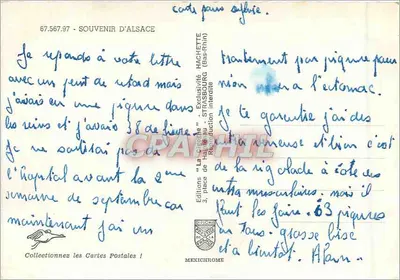 carte pour
67.567.97 - SOUVENIR D'ALSACE
Je reponds à votre lettre
avec un peut de retard mais
j'avais eu une piqure dans
les reins et j'avais 38 de fievre
Je ne sortirai pas de
l'Hopital avant la 2eme
semaine de septembre car
maintenant j'ai un
Collectionnez les Cartes Postales !
Exclusivité HACHETTE
3, place de STRASBOURG (Bas-Rhin)
Reproduction interdite
MEXICHROME
traitement par piqure pour
rien a l'estomac.
Je te garantie j'ai des
intraveineuse et bien c'est
de la rigolade à coté des
intra musculaires. mais il
faut les faire. 63 piqures
en tous. grosse bise
et a bientot. Alain
CPARAMA